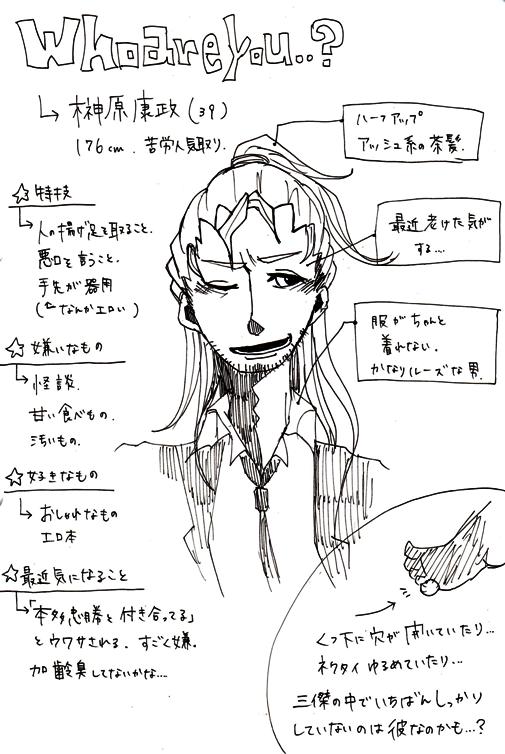 Who are you..?
榊原康政(39)
176cm. 苦労人気取り.
ハーフアップ
アッシュ系の茶髪.
☆特技
人の揚げ足を取ること.
悪口を言うこと.
手先が器用
(←なんかエロい)
最近老けた気が
する....
☆嫌いなもの
怪談.
甘い食べもの.
汚いもの.
服がちゃんと
着れない.
かなりルーズな男.
☆好きなもの
おしゃれなもの
エロ本
☆最近気になること
「本多忠勝と付き合ってる」
とウワサされる. すごく嫌.
加齢臭してないかな....
くつ下に穴が開いていたり...
ネクタイゆるめていたり...
三傑の中でいちばんしっかり
していないのは彼なのかも...?